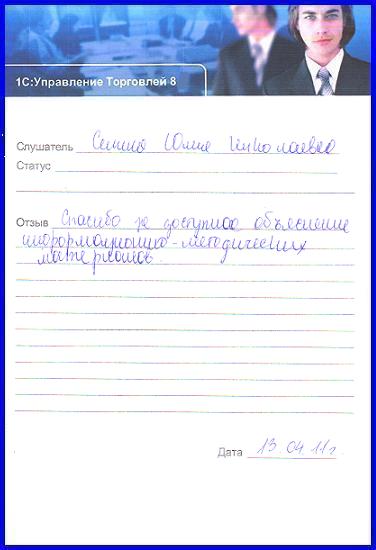 1С:Управление Торговлей 8
Слушатель Сенина Юлия Николаевна
Статус
Отзыв Спасибо за доступное объяснение
информационно-методических
материалов.
Дата 13.04.11г.